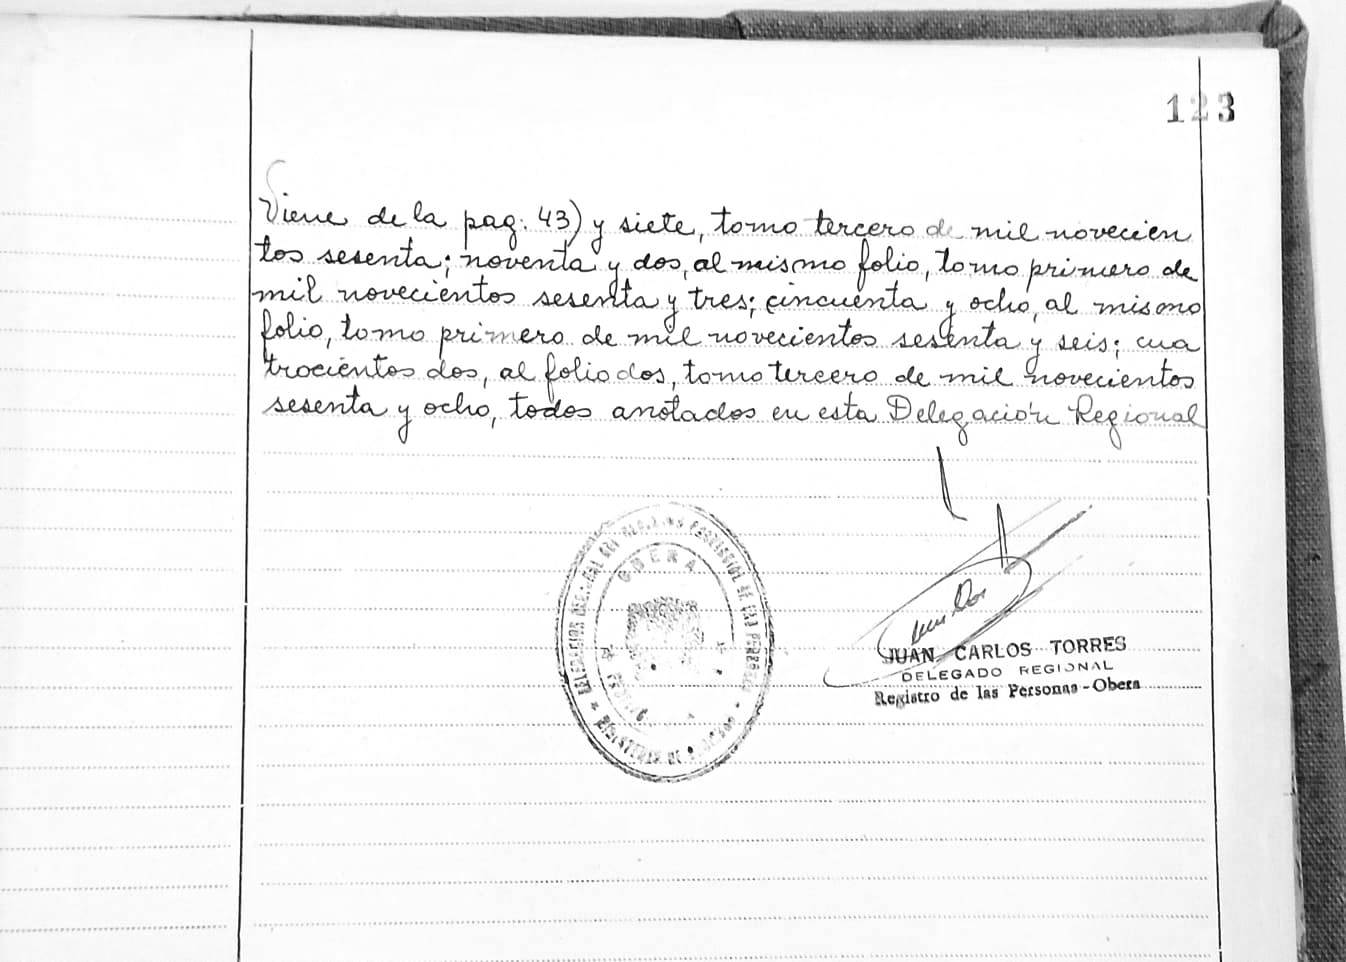 123
Viene de la pag. 43) y siete, tomo tercero de mil novecien
tos sesenta; noventa y dos, al mismo folio, tomo primero de
mil novecientos sesenta y tres; cincuenta y ocho, al mismo
folio, tomo primero de mil novecientos sesenta y seis; cua
trocientos dos, al folio dos, tomo tercero de mil novecientos
sesenta y ocho, todos anotados en esta Delegación Regional
OBERA
JUAN CARLOS TORRES
DELEGADO REGIONAL
Registro de las Personas - Obera